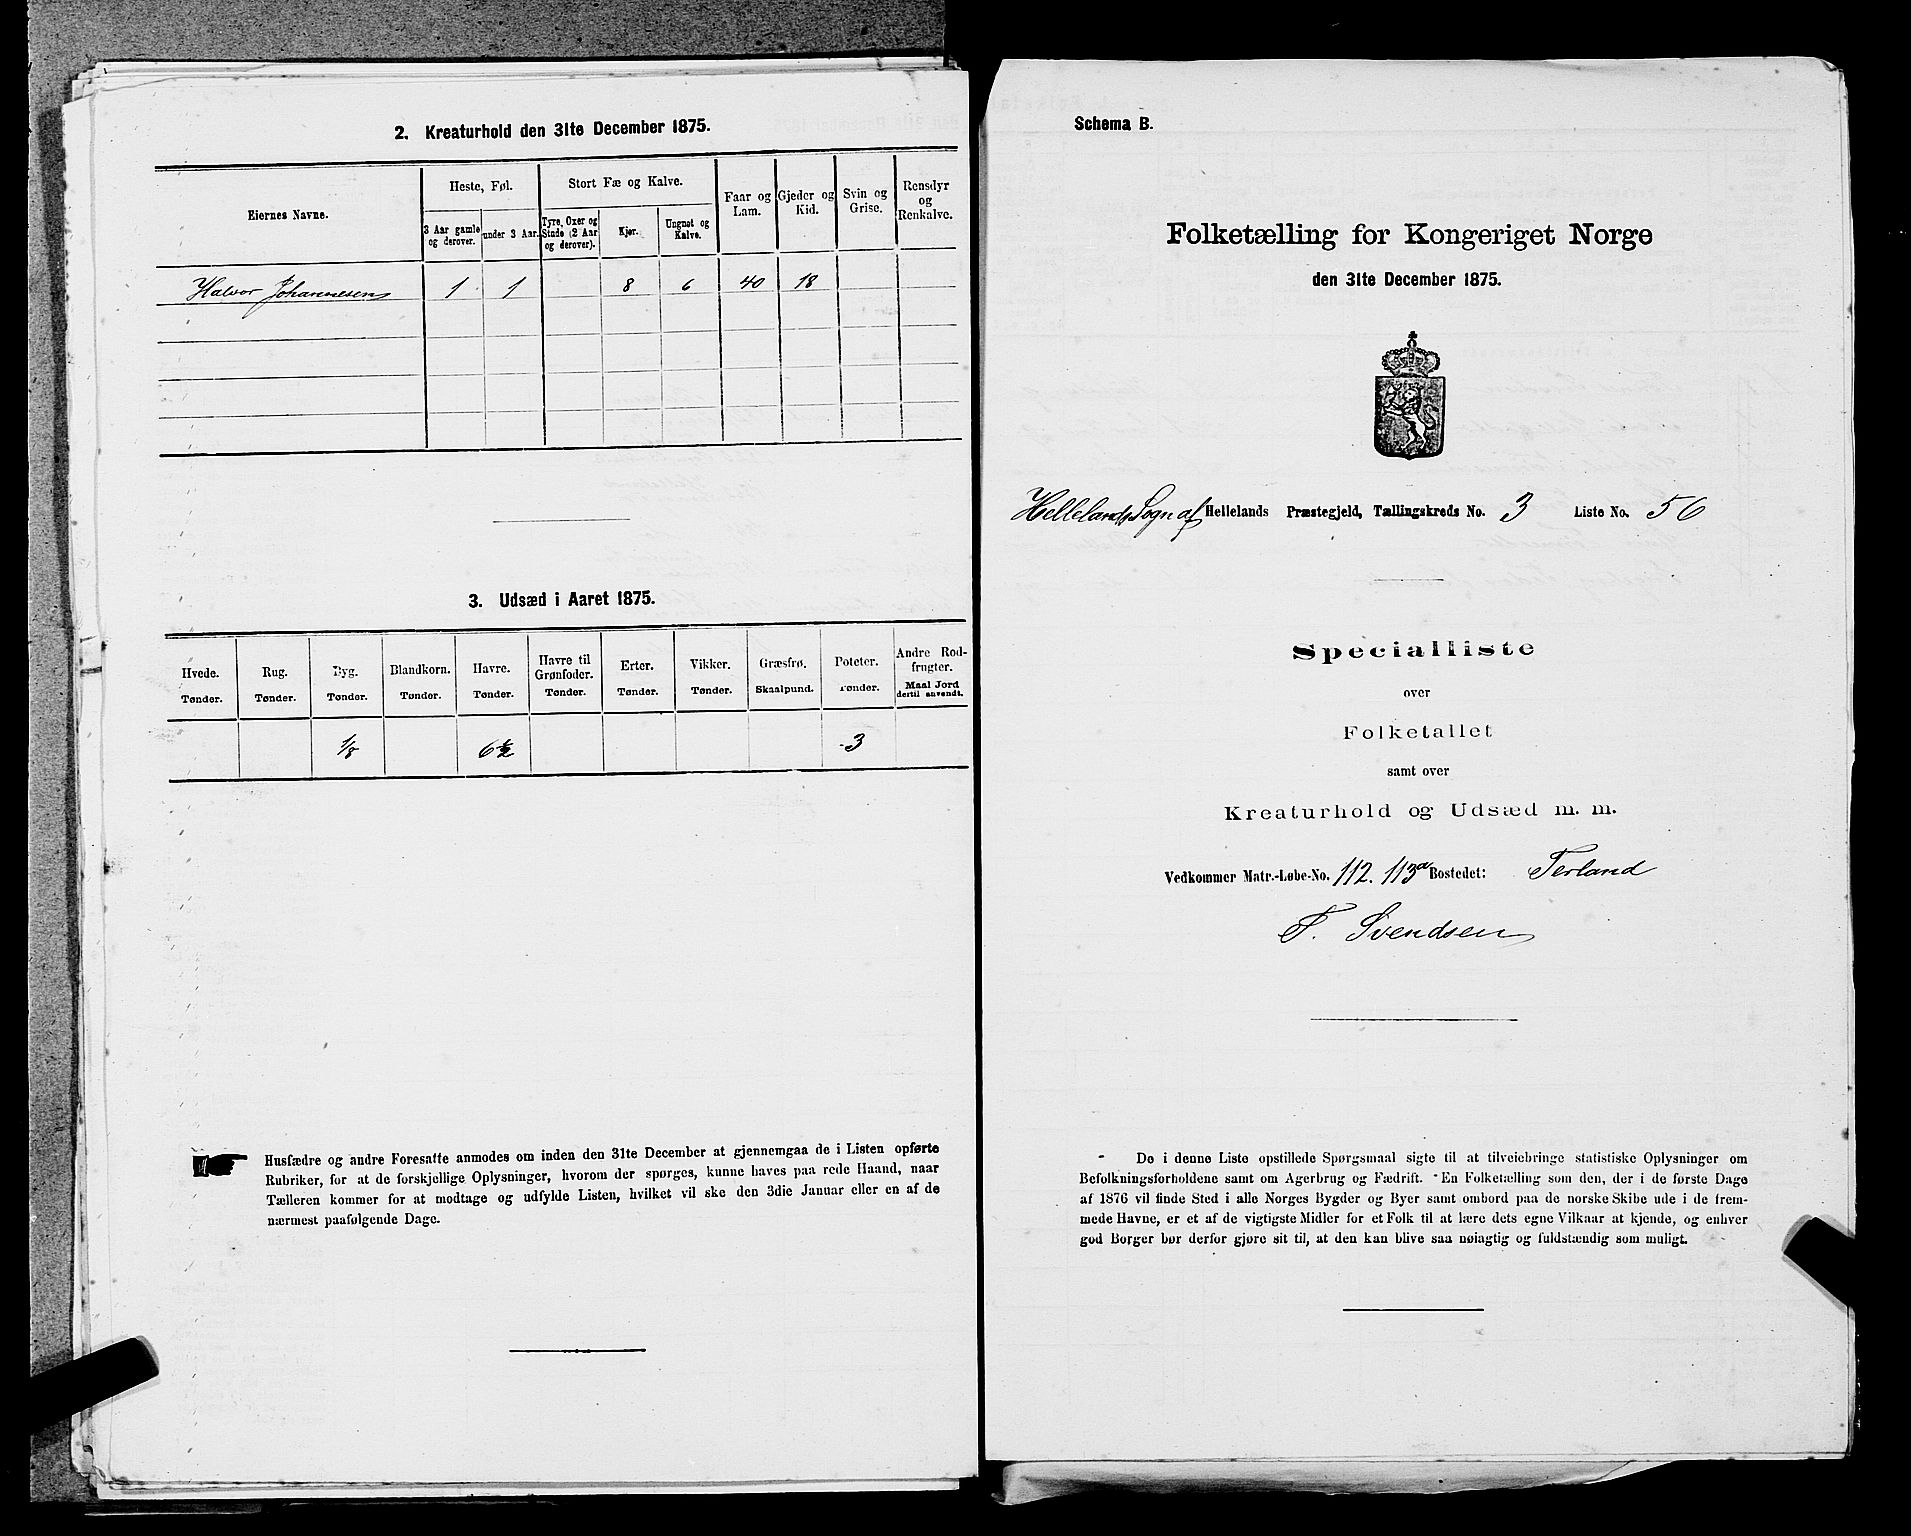 2. Kreaturhold den 31te December 1875.
Eiernes Navne.
Heste, Føl.
Stort Fæ og Kalve.
Faar og Lam.
Gjeder og Kid.
Svin og Grise.
Rensdyr og Renkalve.
3 Aar gamle og derover.
under 3 Aar.
Tyre, Oxer og Stude (2 Aar og derover).
Kjør.
Ungnøt og Kalve.
Halvor Johannesen 1 1 8 6 40 18
3. Udsæd i Aaret 1875.
Hvede. Tønder.
Rug. Tønder.
Byg. Tønder.
Blandkorn. Tønder.
Havre. Tønder.
Havre til Grønfoder. Tønder.
Erter. Tønder.
Vikker. Tønder.
Græsfrø. Skaalpund.
Poteter. Tønder.
Andre Rodfrugter. Maal Jord dertil anvendt.
1/8 6 1/2 3
Husfædre og andre Foresatte anmodes om inden den 31te December at gjennemgaa de i Listen opførte
Rubriker, for at de forskjellige Oplysninger, hvorom der spørges, kunne haves paa rede Haand, naar
Tælleren kommer for at modtage og udfylde Listen, hvilket vil ske den 3die Januar eller en af de
nærmest paafølgende Dage.
Schema B.
Folketælling for Kongeriget Norge
den 31te December 1875.
Hellelands Sogn af Hellelands Præstegjeld, Tællingskreds No. 3 Liste No. 56
Specialliste
over
Folketallet
samt over
Kreaturhold og Udsæd m. m.
Vedkommer Matr.-Løbe-No. 112. 113a Bostedet: Terland
T. Svendsen
De i denne Liste opstillede Spørgsmaal sigte til at tilveiebringe statistiske Oplysninger om
Befolkningsforholdene samt om Agerbrug og Fædrift. En Folketælling som den, der i de første Dage
af 1876 vil finde Sted i alle Norges Bygder og Byer samt ombord paa de norske Skibe ude i de frem-
mede Havne, er et af de vigtigste Midler for et Folk til at lære dets egne Vilkaar at kjende, og enhver
god Borger bør derfor gjøre sit til, at den kan blive saa nøiagtig og fuldstændig som muligt.